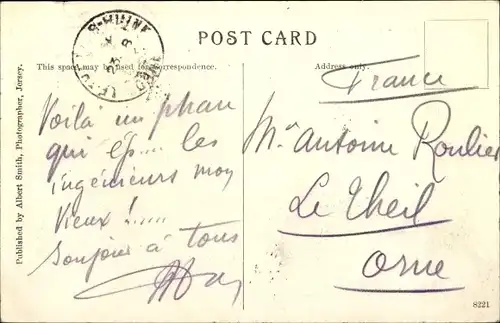 POST CARD
This space may be used for Correspondence.
Address only.
Published by Albert Smith, Photographer, Jersey.
Voilà un phare
qui ... les
ingénieurs mon
vieux !.....
bonjour à tous
France
Mr Antoine Roulier
Le Theil
Orne
8221